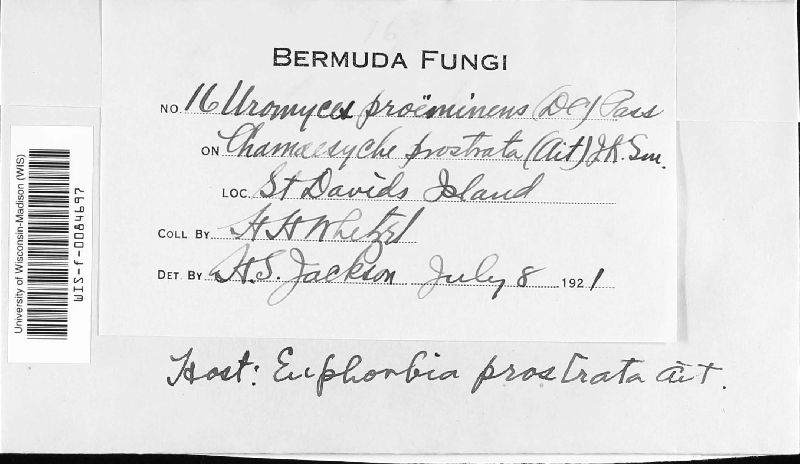 BERMUDA FUNGI
NO. 16 Uromyces proëminens (DC) Pass
ON Chamaesyche prostrata (Ait) J.K. Sm.
LOC. St Davids Island
COLL BY H H Whetzel
DET. BY H.S. Jackson July 8 1921
Host: Euphorbia prostrata Ait.
University of Wisconsin-Madison (WIS)
WIS-f-0084697